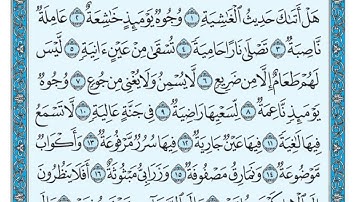 هَلْ أَتَىٰكَ حَدِيثُ ٱلْغَـٰشِيَةِ ۝١ وُجُوهٌ يَوْمَئِذٍ خَـٰشِعَةٌ ۝٢ عَامِلَةٌ
نَّاصِبَةٌ ۝٣ تَصْلَىٰ نَارًا حَامِيَةً ۝٤ تُسْقَىٰ مِنْ عَيْنٍ ءَانِيَةٍ ۝٥ لَّيْسَ
لَهُمْ طَعَامٌ إِلَّا مِن ضَرِيعٍ ۝٦ لَّا يُسْمِنُ وَلَا يُغْنِى مِن جُوعٍ ۝٧ وُجُوهٌ
يَوْمَئِذٍ نَّاعِمَةٌ ۝٨ لِّسَعْيِهَا رَاضِيَةٌ ۝٩ فِى جَنَّةٍ عَالِيَةٍ ۝١٠ لَّا تَسْمَعُ
فِيهَا لَـٰغِيَةً ۝١١ فِيهَا عَيْنٌ جَارِيَةٌ ۝١٢ فِيهَا سُرُرٌ مَّرْفُوعَةٌ ۝١٣ وَأَكْوَابٌ
مَّوْضُوعَةٌ ۝١٤ وَنَمَارِقُ مَصْفُوفَةٌ ۝١٥ وَزَرَابِىُّ مَبْثُوثَةٌ ۝١٦ أَفَلَا يَنظُرُونَ